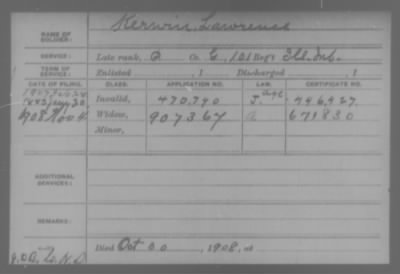 NAME OF SOLDIER: Kerwin, Lawrence
SERVICE: Late rank, P. Co. G, 101 Reg't Ill. Inf.
TERM OF SERVICE: Enlisted , 1 Discharged , 1
DATE OF FILING. CLASS. APPLICATION NO. LAW. CERTIFICATE NO.
Invalid, 470,740 J. 446,427
1908 Nov 4 Widow, 907367 a 671830
Minor,
ADDITIONAL SERVICES:
REMARKS:
Died Oct 00, 1908, at
N.D.